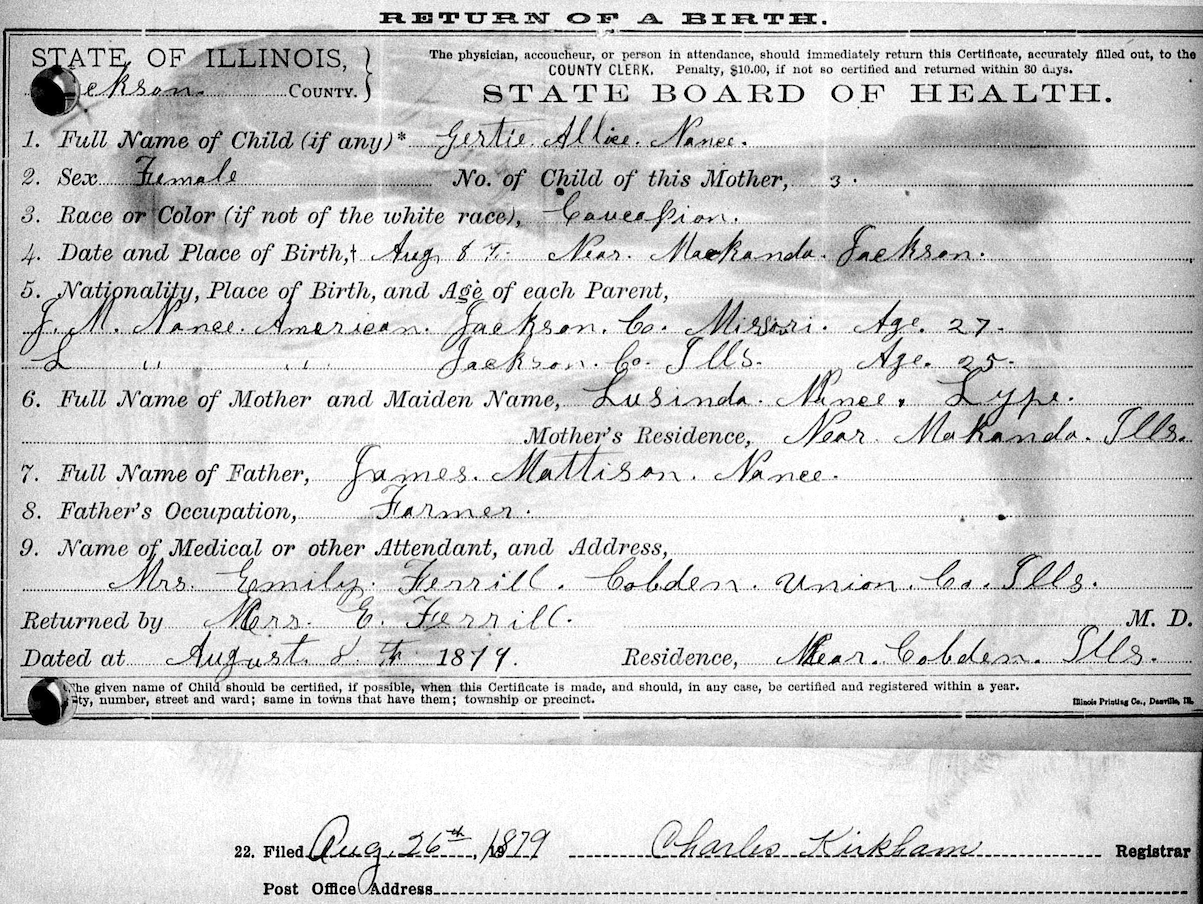 RETURN OF A BIRTH.
STATE OF ILLINOIS, The physician, accoucheur, or person in attendance, should immediately return this Certificate, accurately filled out, to the
COUNTY CLERK. Penalty, $10.00, if not so certified and returned within 30 days.
ckson. COUNTY. STATE BOARD OF HEALTH.
1. Full Name of Child (if any)* Gertie Allice. Nance.
2. Sex Female No. of Child of this Mother, 3.
3. Race or Color (if not of the white race), Caucasion.
4. Date and Place of Birth,† Aug 8 Near. Mackanda. Jackson.
5. Nationality, Place of Birth, and Age of each Parent,
J. M. Nance. American. Jackson. Co. Missori. Age. 27.
L " " Jackson. Co. Ills. Age. 25.
6. Full Name of Mother and Maiden Name, Lusinda. Nance. Lype.
Mother's Residence, Near. Makanda. Ills.
7. Full Name of Father, James. Mattison. Nance.
8. Father's Occupation, Farmer.
9. Name of Medical or other Attendant, and Address,
Mrs. Emily. Ferrill. Cobden. Union. Co. Ills.
Returned by Mrs. E. Ferrill. M. D.
Dated at August. 8 1879. Residence, Near. Cobden. Ills.
The given name of Child should be certified, if possible, when this Certificate is made, and should, in any case, be certified and registered within a year.
ty, number, street and ward; same in towns that have them; township or precinct. Illinois Printing Co., Danville, Ill.
22. Filed Aug. 26th, 1879 Charles Kirkham Registrar
Post Office Address